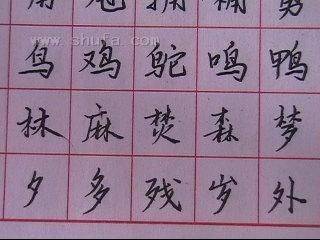 www.shufa.com
鸟 鸡 鸵 鸣 鸭
林 麻 焚 森 梦
夕 多 残 岁 外